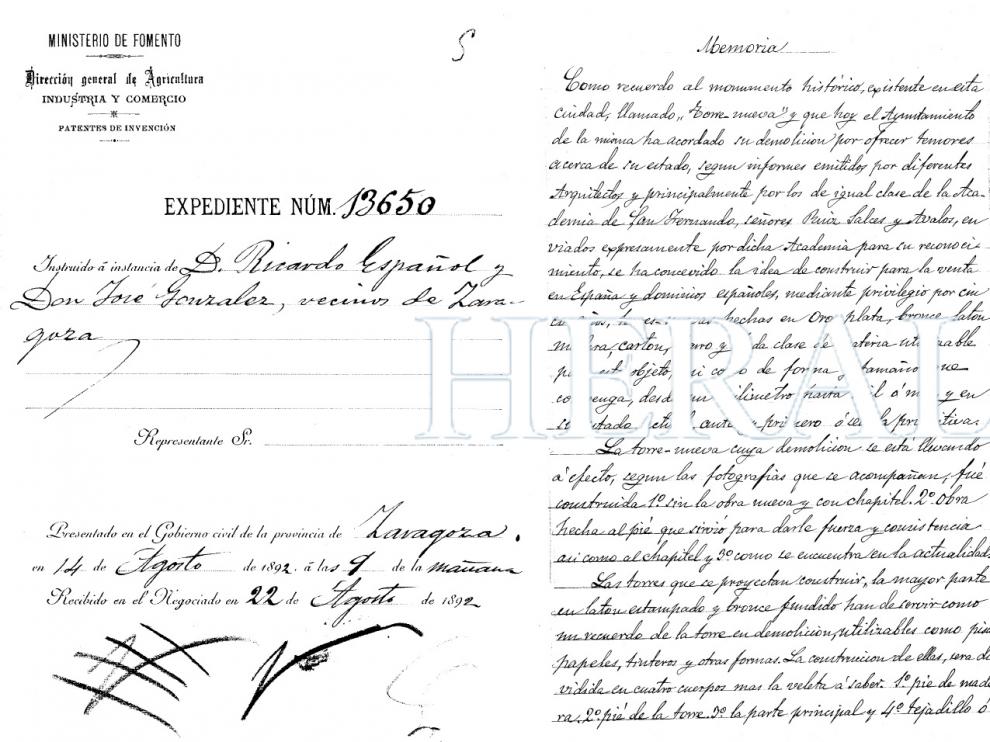 MINISTERIO DE FOMENTO
Dirección general de Agricultura
INDUSTRIA Y COMERCIO
PATENTES DE INVENCIÓN
5
EXPEDIENTE NÚM. 13650
Instruido á instancia de D. Ricardo Español y
Don José Gonzalez, vecinos de Zara-
goza
Representante Sr.
Presentado en el Gobierno civil de la provincia de Zaragoza.
en 14 de Agosto de 1892 á las 9 de la mañana
Recibido en el Negociado en 22 de Agosto de 1892
Memoria
Como recuerdo al monumento histórico, existente en esta
ciudad, llamado „Torre-nueva" y que hoy el Ayuntamiento
de la misma ha acordado su demolicion por ofrecer temores
acerca de su estado, segun informes emitidos por diferentes
Arquitectos y principalmente por los de igual clase de la Aca-
demia de San Fernando, señores Ruiz Salces y Avalos, en
viados expresamente por dicha Academia para su reconoci-
miento, se ha concevido la idea de construir para la venta
en España y dominios españoles, mediante privilegio por cin
hechas en Oro plata, bronce laton
carton, y clase de materia
objeto, de forma y tamaño que
convenga, desde un milimetro hasta mil ó mas y en
su estado actual, y primero ó sea la primitiva.
HERAL
La torre-nueva cuya demolicion se está llevando
á efecto, segun las fotografias que se acompañan, fué
construida 1º sin la obra nueva y con chapitel. 2º Obra
hecha al pié que sirvió para darle fuerza y consistencia
asi como al chapitel y 3º como se encuentra en la actualidad.
Las torres que se proyectan construir, la mayor parte
en laton estampado y bronce fundido han de servir como
un recuerdo de la torre en demolicion, utilizables como pisa
papeles, tinteros y otras formas. La construccion de ellas, sera di
vidida en cuatro cuerpos mas la veleta á saber. 1º pie de made
ra. 2º pié de la torre. 3º la parte principal y 4º tejadillo ó